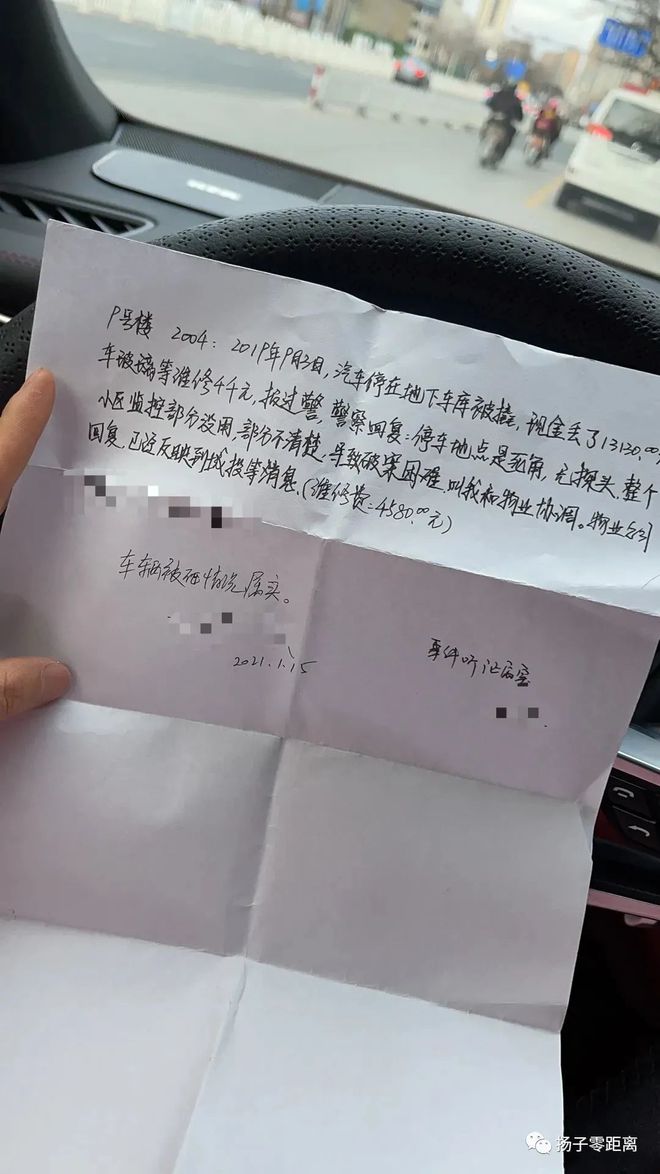 9号楼 2004：2019年9月3日，汽车停在地下车库被撬，现金丢了13130.00元
车玻璃等维修4千元，报过警，警察回复：停车地点是死角，无探头，整个
小区监控部分没用，部分不清楚，导致破案困难，叫我和物业协调。物业公司
回复，已经反映到城投等消息。（维修费：4580.00元）
车辆被砸情况属实。
2021.1.15
扬子零距离